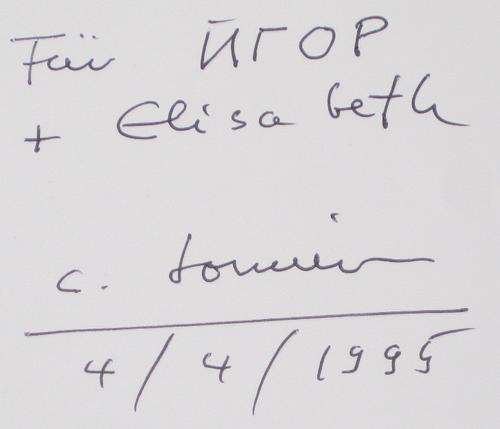 Für ЙГОР
+ Elisabeth
c.
4/4/1995